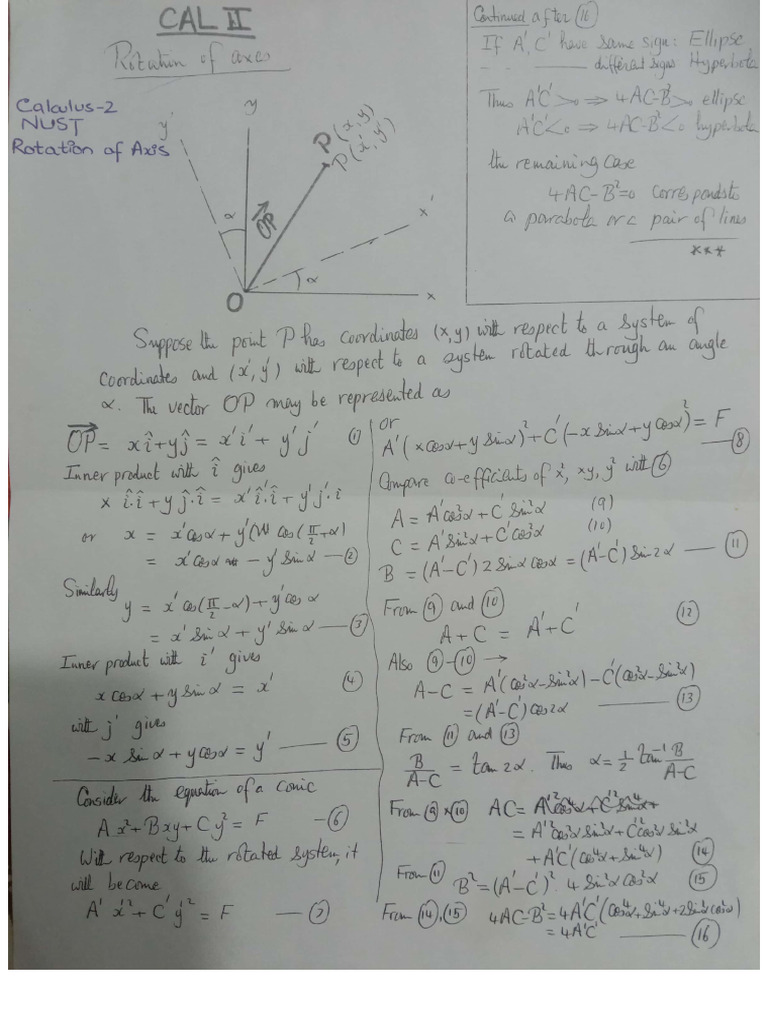 CAL II
Rotation of axes
Calculus-2
NUST
Rotation of Axis
y'
y
P(x,y)
P(x',y')
α
OP
x'
α
O
x
Continued after (16)
If A', C' have same sign: Ellipse
different signs Hyperbola
Thus A'C'>0 ⇒ 4AC-B²>0 ellipse
A'C'<0 ⇒ 4AC-B²<0 hyperbola
the remaining case
4AC-B²=0 corresponds to
a parabola or a pair of lines
***
Suppose the point P has coordinates (x,y) with respect to a system of
coordinates and (x',y') with respect to a system rotated through an angle
α. The vector OP may be represented as
OP = xî+yĵ = x'i'+ y'j' (1)
Inner product with î gives
x î.î + y ĵ.î = x'î'.î + y'j'.i
or x = x'cosα + y'( cos(π/2+α)
= x'cosα - y'sinα —(2)
Similarly
y = x'cos(π/2-α)+y'cosα
= x'sinα + y'sinα —(3)
Inner product with i' gives
x cosα + y sinα = x' (4)
with j' gives
-x sinα + y cosα = y' —(5)
Consider the equation of a conic
Ax²+Bxy+Cy² = F —(6)
With respect to the rotated system, it
will become
A'x'²+C'y'² = F —(7)
or
A'(x cosα+y sinα)²+C'(-x sinα+y cosα)² = F —(8)
Compare co-efficients of x², xy, y² with (6)
A = A'cos²α + C'sin²α (9)
C = A'sin²α + C'cos²α (10)
B = (A'-C')2 sinα cosα = (A'-C') sin2α —(11)
From (9) and (10)
A+C = A'+C' (12)
Also (9)-(10) →
A-C = A'(cos²α-sin²α)-C'(cos²α-sin²α)
= (A'-C')cos2α —(13)
From (11) and (13)
B/(A-C) = tan2α. Thus α = 1/2 tan⁻¹ B/(A-C)
From (9)×(10) AC=
= A'²cos²α sin²α + C'²cos²α sin²α
+A'C'(cos⁴α+sin⁴α) (14)
From (11)
B²=(A'-C')². 4 sin²α cos²α (15)
From (14),(15) 4AC-B²=4A'C'(cos⁴α+sin⁴α+2sin²αcos²α)
= 4A'C' —(16)